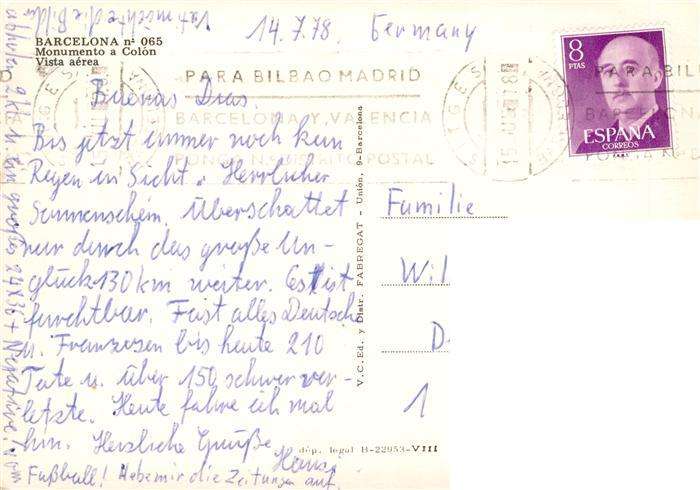 14.7.78. Germany
BARCELONA nº 065
Monumento a Colón
Vista aérea
PARA BILBAO MADRID
BARCELONA Y VALENCIA
POSTAL
SITGES
8
PTAS
ESPAÑA
CORREOS
PARA BIL
Buenas Dias.
Bis jetzt immer noch kein
Regen in Sicht. Herrlicher
Sonnenschein. Überschattet
nur durch das große Un-
glück 130 km weiter. Es ist
furchtbar. Fast alles Deutsche
u. Franzosen bis heute 210
Tote u. über 150 schwer ver-
letzte. Heute fahre ich mal
hin. Herzliche Grüße
Hans
Fußball! Hebe mir die Zeitungen auf.
V.C. Ed. y Distr. FABREGAT - Unión, 9-Barcelona
dép. legal B-22953-VIII
Familie
Wil
D.
1
abholen 9x 24x36 + Negative!
möchte die Bilder